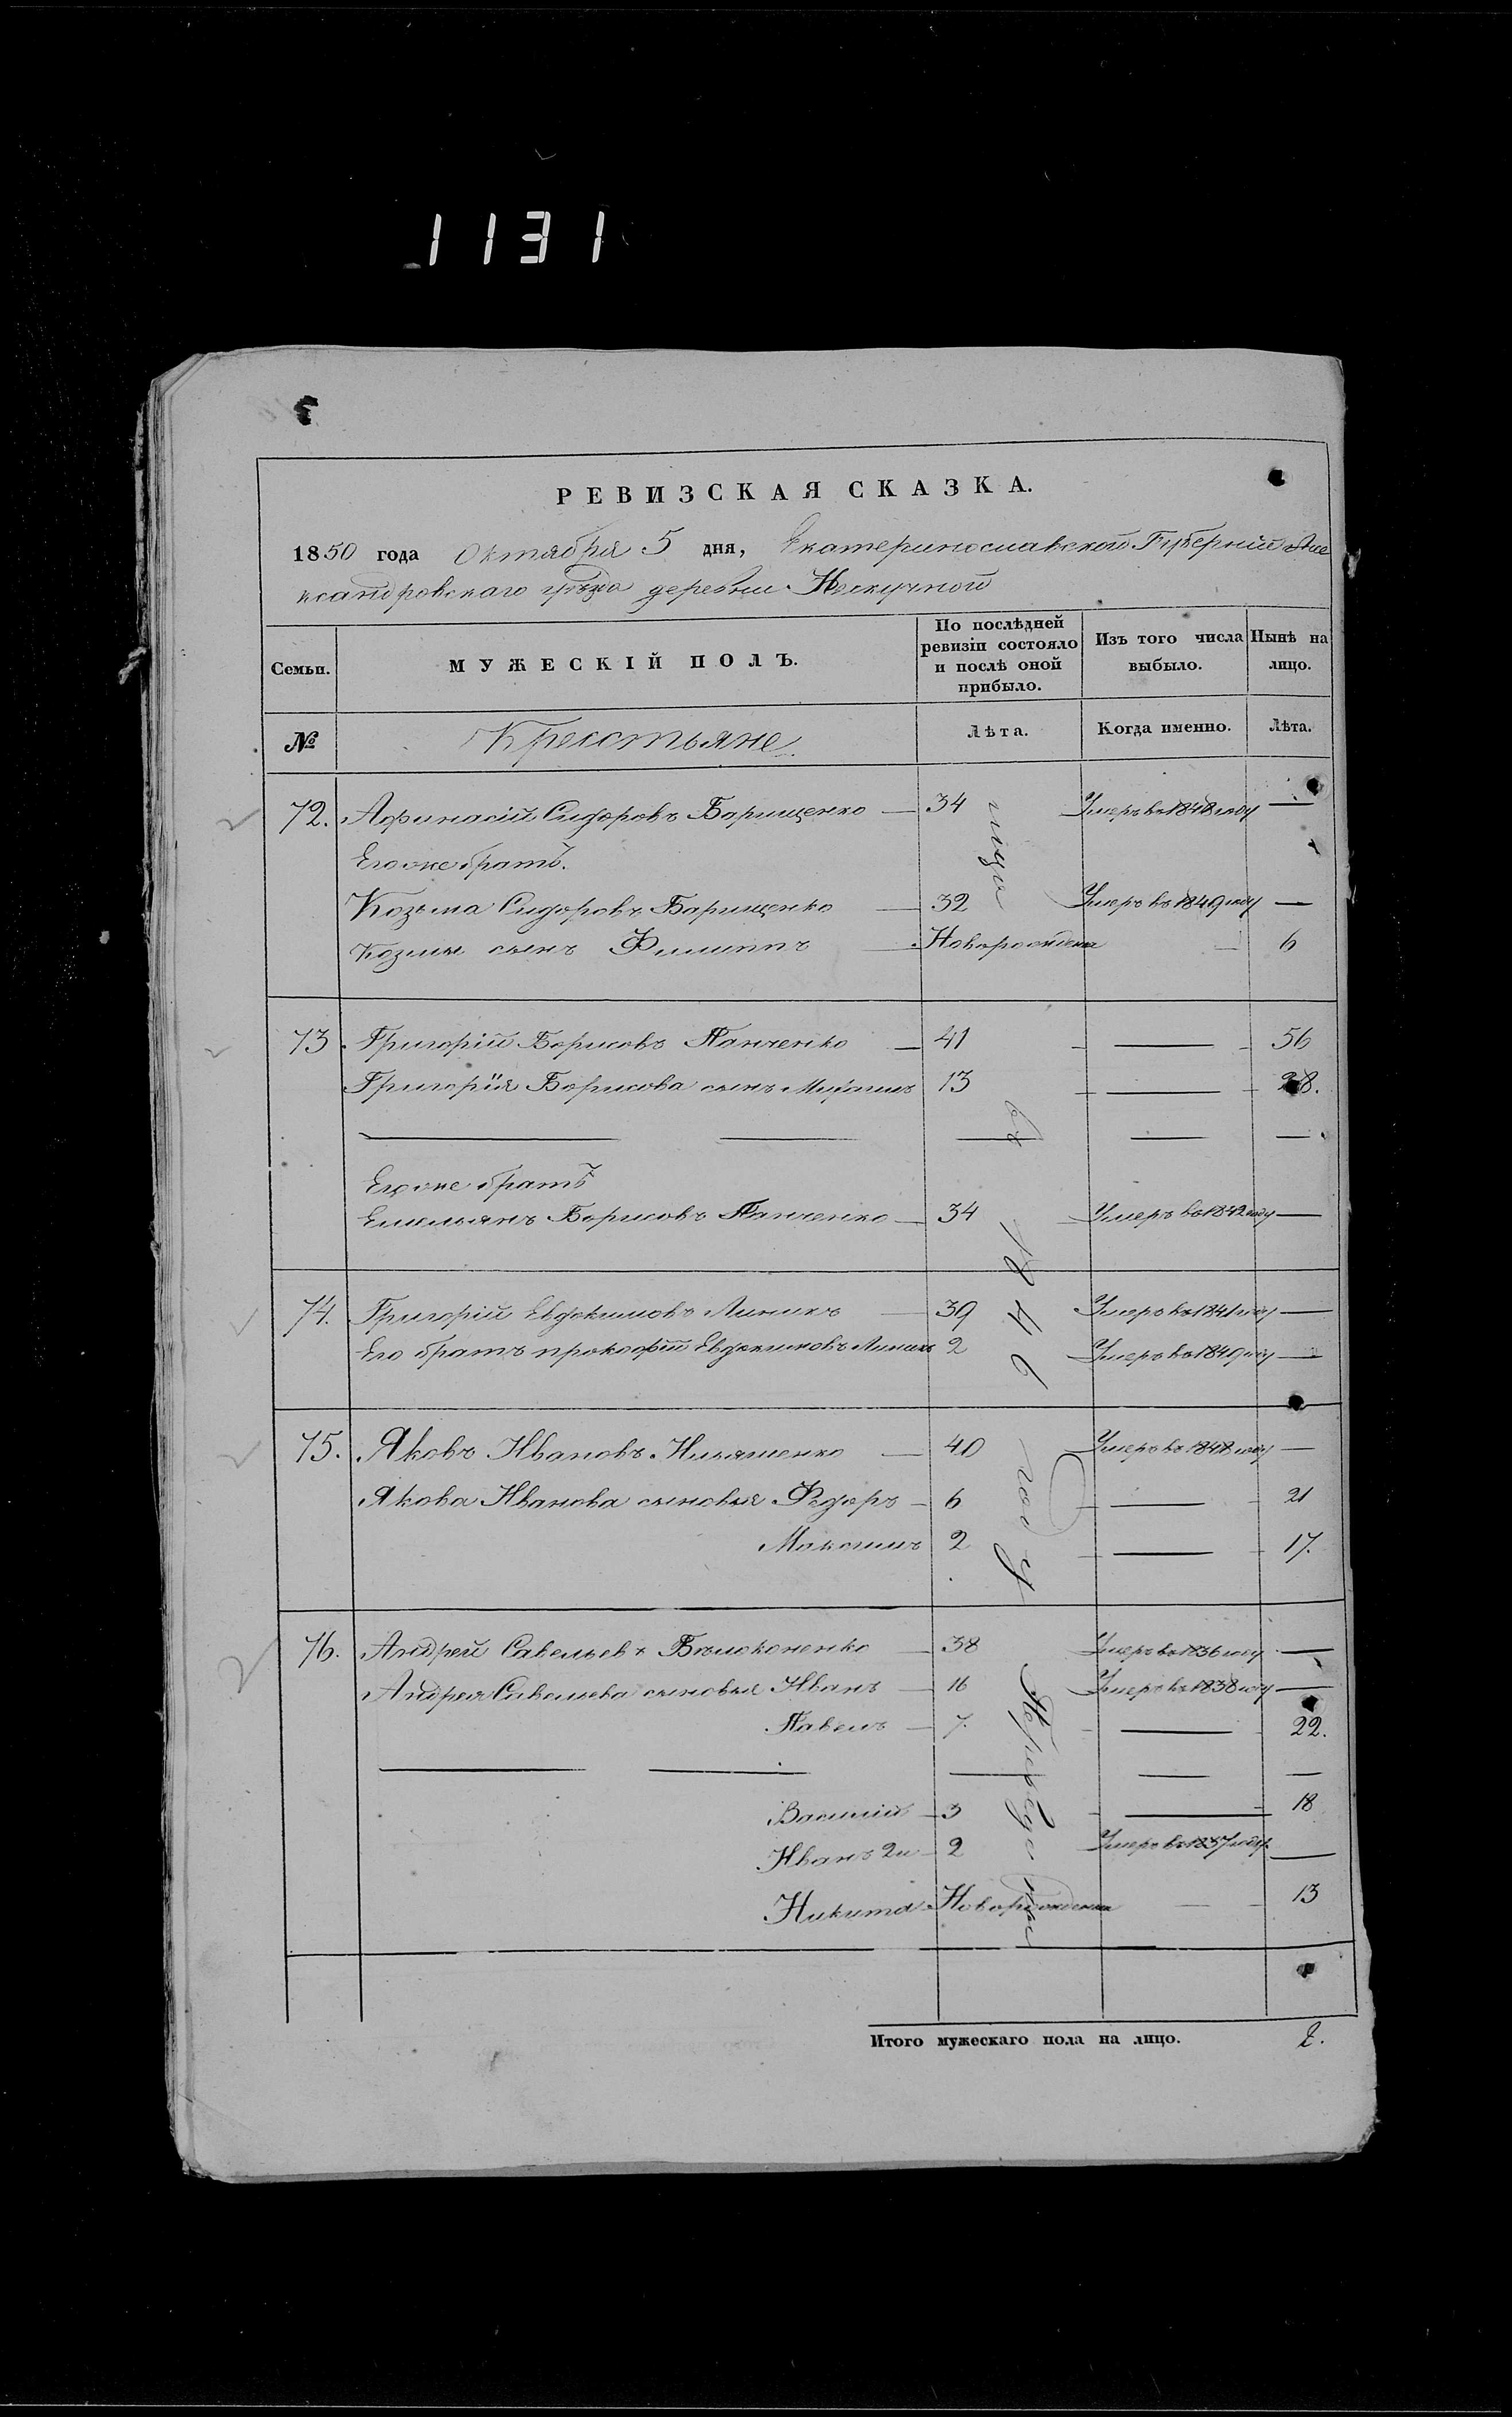 1131
РЕВИЗСКАЯ СКАЗКА.
1850 года Октября 5 дня, Екатеринославской Губерніи Але
ксандровскаго уѣзда деревни Нескучной
Семьи. МУЖЕСКІЙ ПОЛЪ. По послѣдней ревизіи состояло и послѣ оной прибыло. Изъ того числа выбыло. Нынѣ на лицо.
№ Крестьяне Лѣта. Когда именно. Лѣта.
72. Афинасій Сидоровъ Борищенко — 34 Умеръ въ 1848 году —
Его же братъ.
Козьма Сидоровъ Борищенко — 32 Умеръ въ 1849 году —
Козьмы сынъ Филиппъ — Новорожденъ — 6
73 Григорій Борисовъ Панченко — 41 — 56
Григорія Борисова сынъ 13 — 28.
Его же братъ
Емельянъ Борисовъ Панченко — 34 Умеръ въ 1842 году —
74. Григорій Евдокимовъ Линикъ — 39 Умеръ въ 1841 году —
Его братъ прокофій Евдокимовъ Линикъ 2 Умеръ въ 1840 году —
75. Яковъ Ивановъ Ильяшенко — 40 Умеръ въ 1848 году —
Якова Иванова сыновья Федоръ — 6 — 21
Максимъ 2 — 17.
76. Андрей Савельевъ Бѣлоконенко — 38 Умеръ въ 1836 году —
Андрея Савельева сыновья Иванъ — 16 Умеръ въ 1838 году —
Павелъ — 7. — 22.
Василій — 3 — 18
Иванъ 2й — 2 Умеръ въ 1837 году. —
Никита Новорожденъ — 13
въ 1846 году
Итого мужескаго пола на лицо.